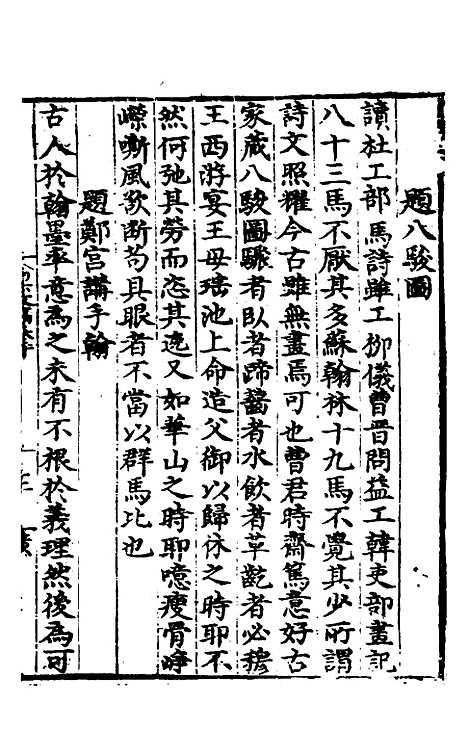 題八駿圖
讀杜工部馬詩雖工柳儀曹晉問益工韓吏部畫記
八十三馬不厭其多蘇翰林十九馬不覺其少所謂
詩文照耀今古雖無畫焉可也曹君時齋篤意好古
家藏八駿圖驟者臥者蹄齧者水飲者草齕者必穆
王西游宴王母瑤池上命造父御以歸休之時耶不
然何弛其勞而恣其逸又如華山之時耶噫瘦骨崢
嶸嘶風欲断苟具眼者不當以群馬比也
題鄭宮講手翰
古人於翰墨率意為之未有不根於義理然後為可